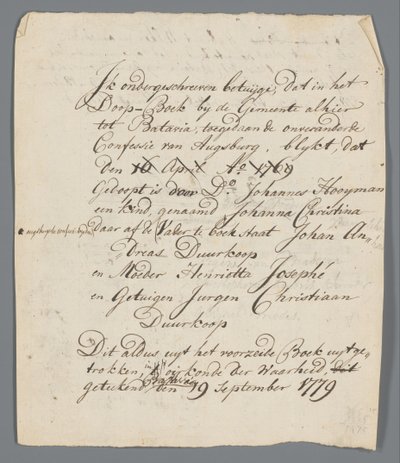 Ik ondergeschreeven betuijge, dat in het
Doop-Boek by de Gemeente alhier
tot Batavia, toegedaan de onveranderde
Confessie van Augsburg, blykt, dat
den 16 April Ao. 1769
Gedoopt is door Do. Johannes Hooyman
een kind, genaamd Johanna Christina
daar af de Vader te boek staat Johan An-
dreas Duurkoop
en Moeder Henrietta Josephé
en Getuigen Jurgen Christiaan
Duurkoop
Dit aldus uyt het voorzeide Boek uytge-
trokken, oirkonde der Waarheid, dit
getekend Batavia den 19 September 1779